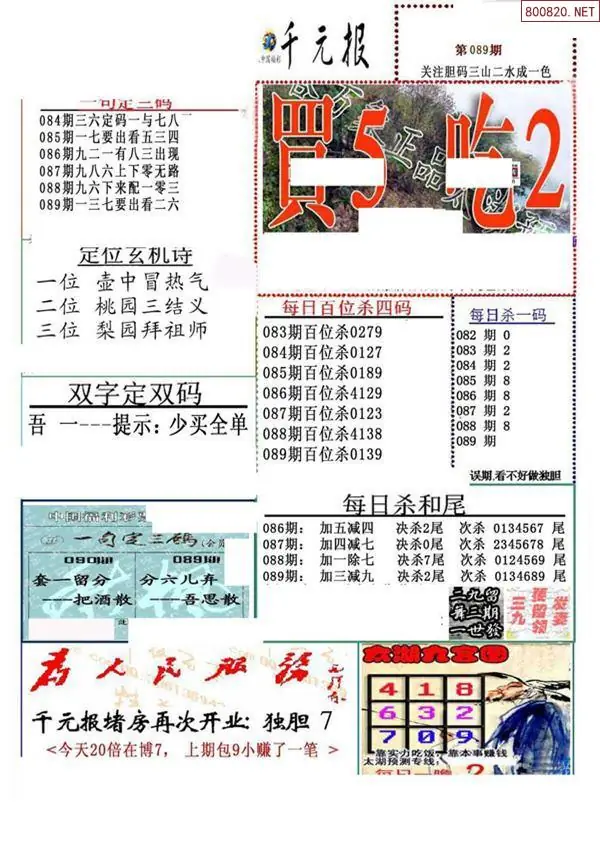 800820.NET
千元报
第089期
关注胆码三山二水成一色
一句定三码
084期三六定码一与七八
085期一七要出看五三四
086期九二一有八三出现
087期九八六上下零无路
088期九六下来配一零三
089期一三七要出看二六
買5 吃2
定位玄机诗
一位 壶中冒热气
二位 桃园三结义
三位 梨园拜祖师
每日百位杀四码
083期百位杀0279
084期百位杀0127
085期百位杀0189
086期百位杀4129
087期百位杀0123
088期百位杀4138
089期百位杀0139
每日杀一码
082 期 0
083 期 2
084 期 2
085 期 8
086 期 8
087 期 2
088 期 8
089 期
误期,看不好做独胆
双字定双码
吾 一---提示:少买全单
每日杀和尾
086期: 加五减四 决杀2尾 次杀 0134567 尾
087期: 加四减七 决杀0尾 次杀 2345678 尾
088期: 加一除七 决杀7尾 次杀 0124569 尾
089期: 加三减九 决杀2尾 次杀 0134689 尾
一句定三码
090期 089期
套一留分 分六儿弃
一把酒散 一吾思散
为人民服务
千元报堵房再次开业: 独胆 7
<今天20倍在博7, 上期包9小赚了一笔 >
太湖九宫图
4 1 8
6 3 2
7 0 9
靠实力吃饭,靠本事赚钱
太湖预测专线: